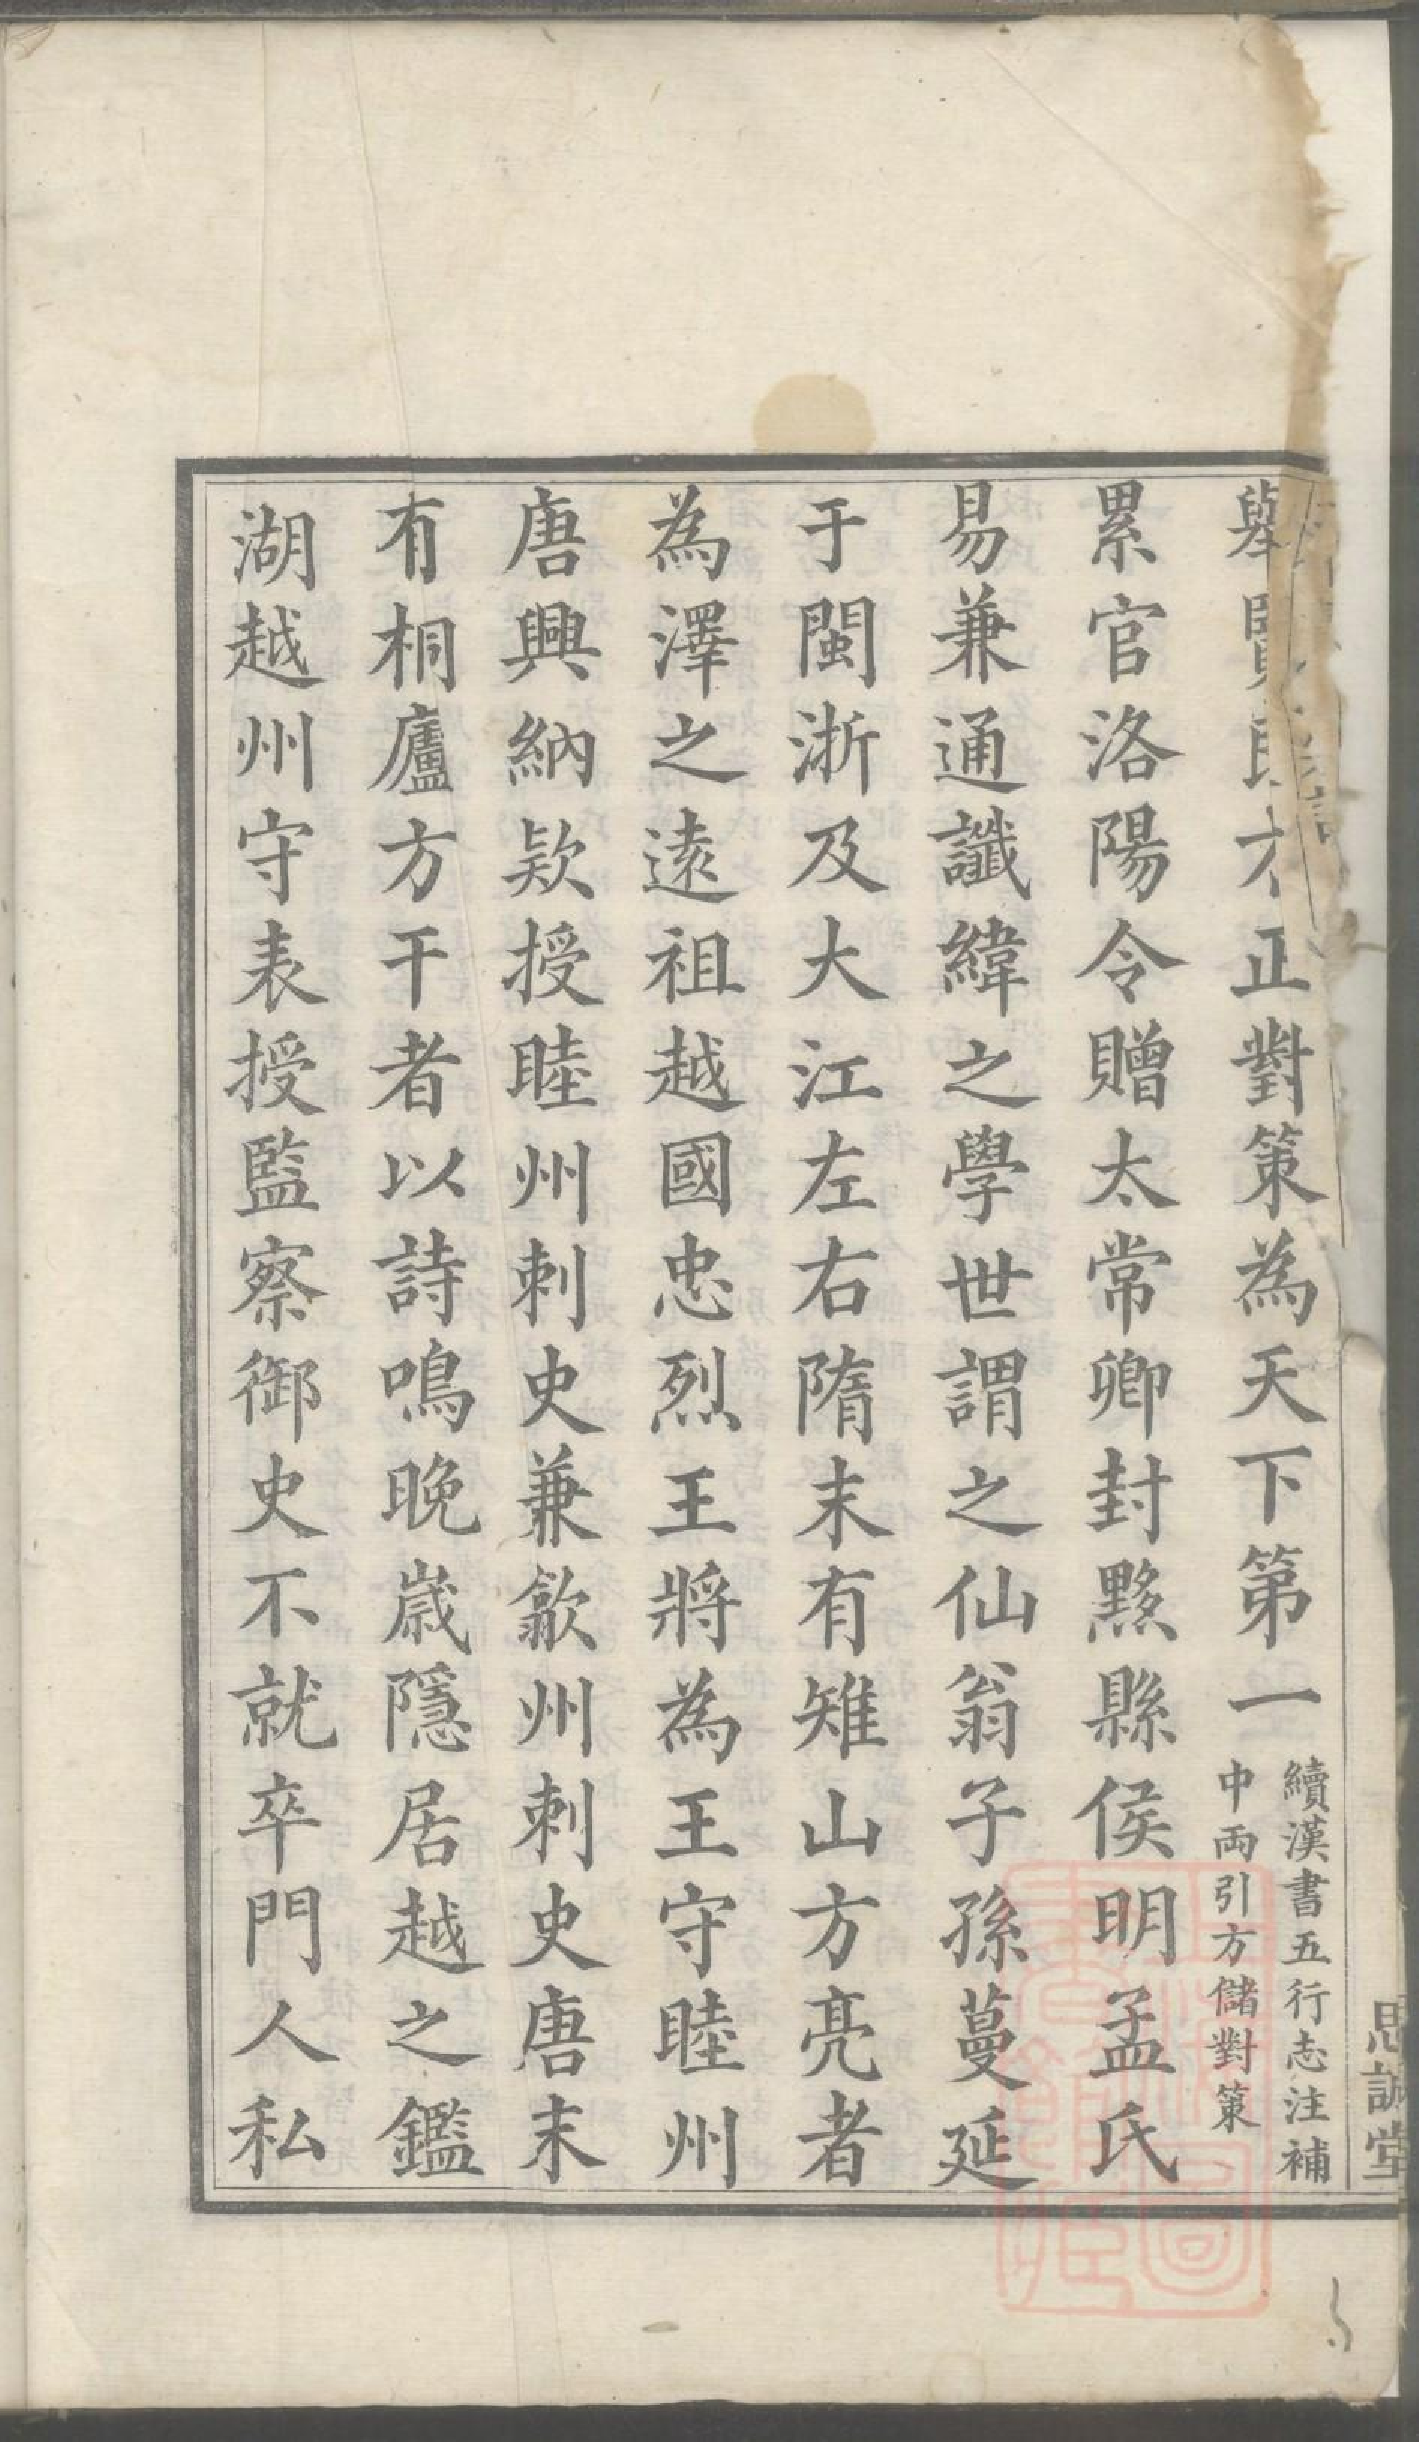 舉賢良方正對策為天下第一續漢書五行志注補
中両引方儲對策
累官洛陽令贈太常卿封黟縣侯明孟氏
易兼通讖緯之學世謂之仙翁子孫蔓延
于閩浙及大江左右隋末有雉山方亮者
為澤之遠祖越國忠烈王將為王守睦州
唐興納欵授睦州刺史兼歙州刺史唐末
有桐廬方干者以詩鳴晚歲隱居越之鑑
湖越州守表授監察御史不就卒門人私
思誠堂